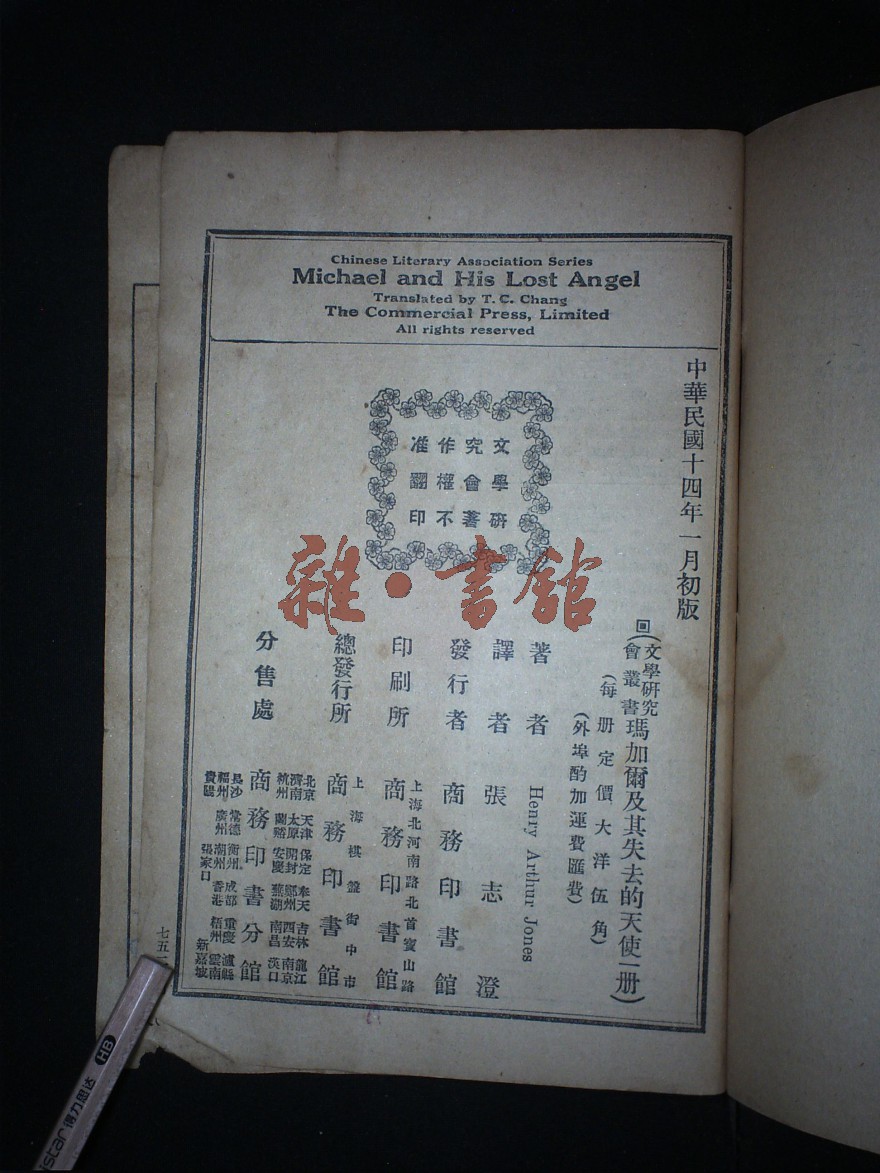 Chinese Literary Association Series
Michael and His Lost Angel
Translated by T. C. Chang
The Commercial Press, Limited
All rights reserved
中華民國十四年一月初版
文學研究
會叢書
瑪加爾及其失去的天使一册
(每册定價大洋伍角)
(外埠酌加運費匯費)
文學研
究會著
作權不
准翻印
著者 Henry Arthur Jones
譯者 張志澄
發行者 商務印書館
印刷所 上海北河南路北首寶山路
商務印書館
總發行所 上海棋盤街中市
商務印書館
分售處
北京 天津 保定 奉天 吉林 龍江
濟南 太原 開封 鄭州 西安 南京
杭州 蘭谿 安慶 蕪湖 南昌 漢口
商務印書分館
長沙 常德 衡州 成都 重慶 瀘縣
福州 廣州 潮州 香港 梧州 雲南
貴陽 張家口 新嘉坡
七五一
雜·書館
HB
得力思达
star